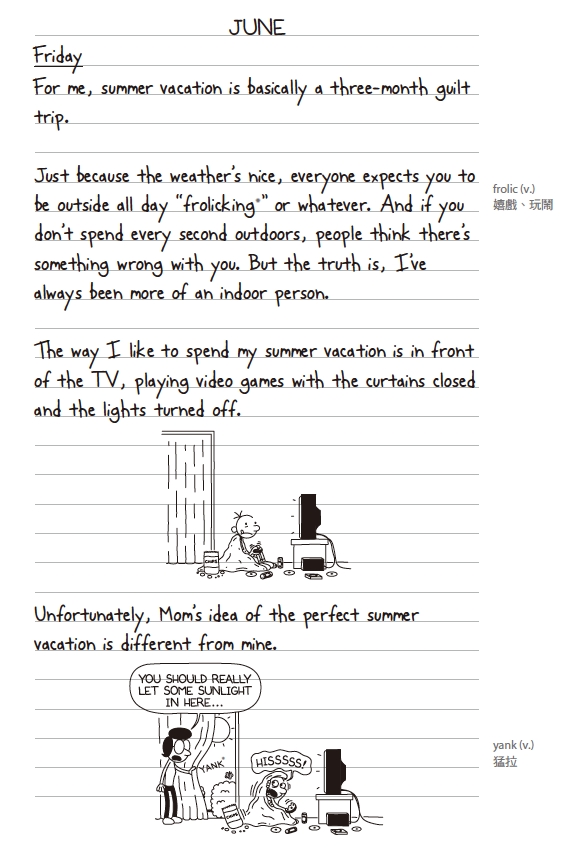 JUNE
Friday
For me, summer vacation is basically a three-month guilt
trip.
Just because the weather's nice, everyone expects you to
be outside all day "frolicking*" or whatever. And if you
don't spend every second outdoors, people think there's
something wrong with you. But the truth is, I've
always been more of an indoor person.
frolic (v.)
嬉戲、玩鬧
The way I like to spend my summer vacation is in front
of the TV, playing video games with the curtains closed
and the lights turned off.
CHIPS
Unfortunately, Mom's idea of the perfect summer
vacation is different from mine.
YOU SHOULD REALLY
LET SOME SUNLIGHT
IN HERE...
YANK*
HISSSSS!
CHIPS
yank (v.)
猛拉